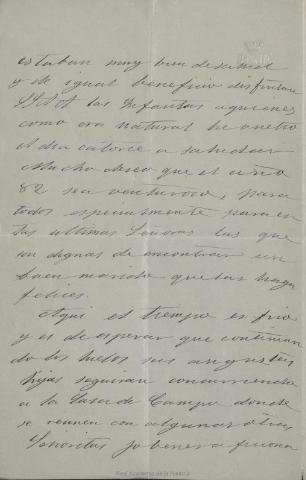 estaban muy bien de salud
y de igual beneficio disfrutan
SSAA las Infantas a quienes,
como era natural he entro
el dia catorce a saludar
Mucho deseo que el año
82 sea venturoso, para
todos especialmente para es
tas ultimas Señoras las que
son dignas de encontrar un
buen marido que las haga
felices.
Aqui el tiempo es frio
y es de esperar que continuan
do los hielos sus augustas
hijas seguiran concurriendo
a la Casa de Campo donde
se reunen con algunas otras
Señoritas jobenes a
Real Academia de la Historia